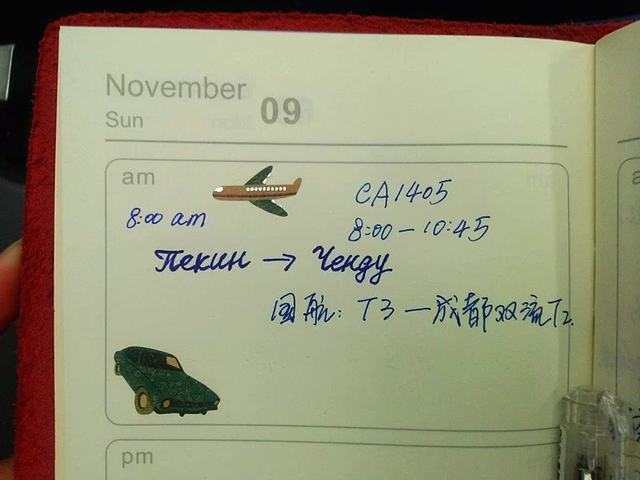 November 09
Sun
am
CA1405
8:00 am
8:00 — 10:45
Пекин → Ченду
国航: T3 — 成都双流T2.
pm